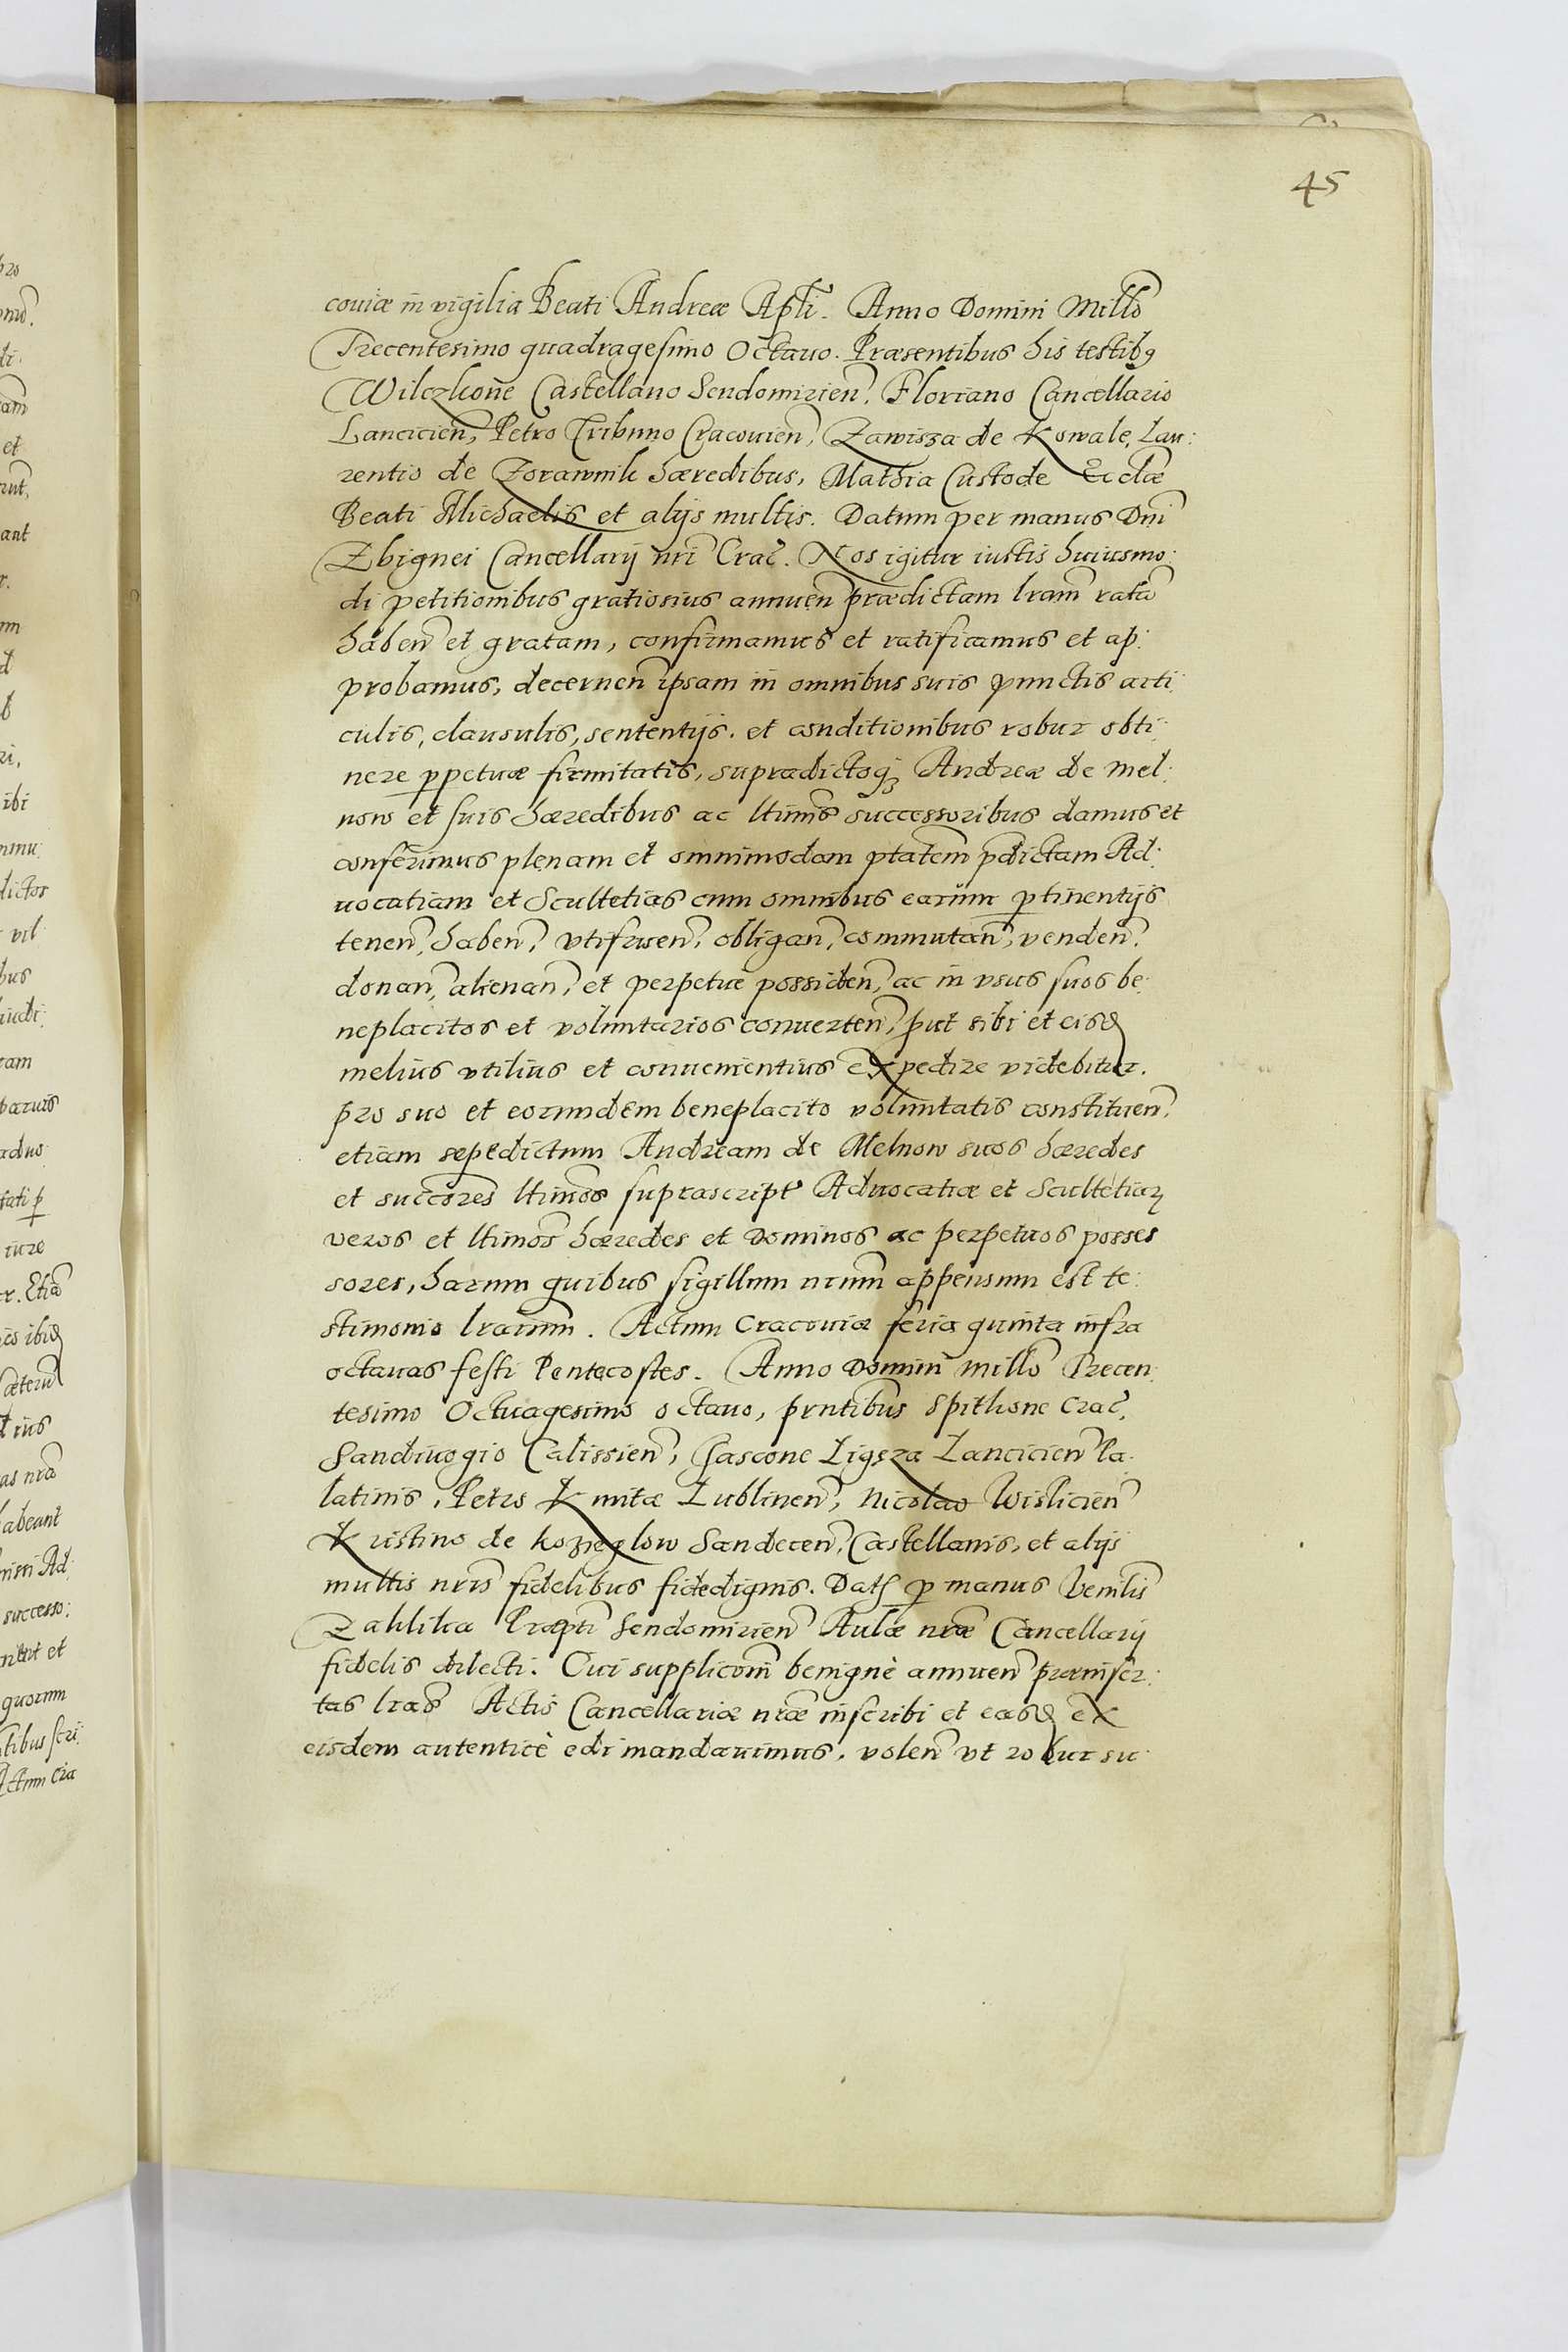 45
couiæ in vigilia Beati Andreæ Apli. Anno Domini Millõ
Trecentesimo quadragesimo Octauo. Præsentibus his testibꝯ
Wilczkone Castellano Sendomirien̄, Floriano Cancellario
Lancicien̄, Petro Tribuno Cracouien̄, Zawisza de Kowale, Lau:
rentio de Zorawnik hæredibus, Mathia Custode Ecclæ
Beati Michaelis et alijs multis. Datum per manus Dn̄i
Zbignei Cancellarij nr̄i Crac̄. Nos igitur iustis huiusmo:
di petitionibus gratiosius annuen̄ prædictam lr̄am ratã
haben̄ et gratam, confirmamus et ratificamus et ap:
probamus, decernen̄ ipsam in omnibus suis punctis arti:
culis, clausulis, sententijs. et conditionibus robur obti:
nere ꝑpetuæ firmitatis, supradictoqꝫ Andreæ de Mel:
now et suis hæredibus ac ltim̄s successoribus damus et
conferimus plenam et omnimodam ptatem̄ pdictam Ad:
uocatiam et Scultetias cum omnibus earum ꝑtinentijs
tenen̄, haben̄, vtifruen̄, obligan̄, commutan̄, venden̄,
donan̄, alienan̄, et perpetuè possiden̄, ac in vsus suos be:
neplacitos et voluntarios conuerten̄, put sibi et eisd
melius vtilius et conuenientius expedire videbitur.
pro suo et eorundem beneplacito voluntatis constituen̄.
etiam sepedictum Andream de Melnow suos hæredes
et succores̄ ltimos̄ suprascript Aduocatiæ et Scultetiaꝝ
veros et ltimos̄ hæredes et Dominos ac perpetuos posses
sores, harum quibus sigillum nrum̄ appensum est te:
stimonio lrarum̄. Actum Cracouiæ feria quinta infra
octauas festi Pentecostes. Anno Domini millõ Trecen:
tesimo Octuagesimo octauo, prntibus̄ Spithone Crac̄,
Sandiuogio Calissien̄, Jascone Ligęza Lancicien̄ Pa:
latinis, Petro Kmitæ Lublinen̄, Nicolao Wislicien̄
Kristino de Kozieglow Sandecen̄, Castellanis, et alijs
multis nris̄ fidelibus fidedignis. Dat ꝑ manus Venilis̄
Zaklika Præpti Sendomirien̄ Aulæ nræ Cancellarij
fidelis dilecti. Cui suppliconi̅ benignè annuen̄ præinser:
tas lras̄ Actis Cancellariæ nræ inscribi et easd ex
eisdem autenticè edi mandauimus, volen̄ vt robur su: